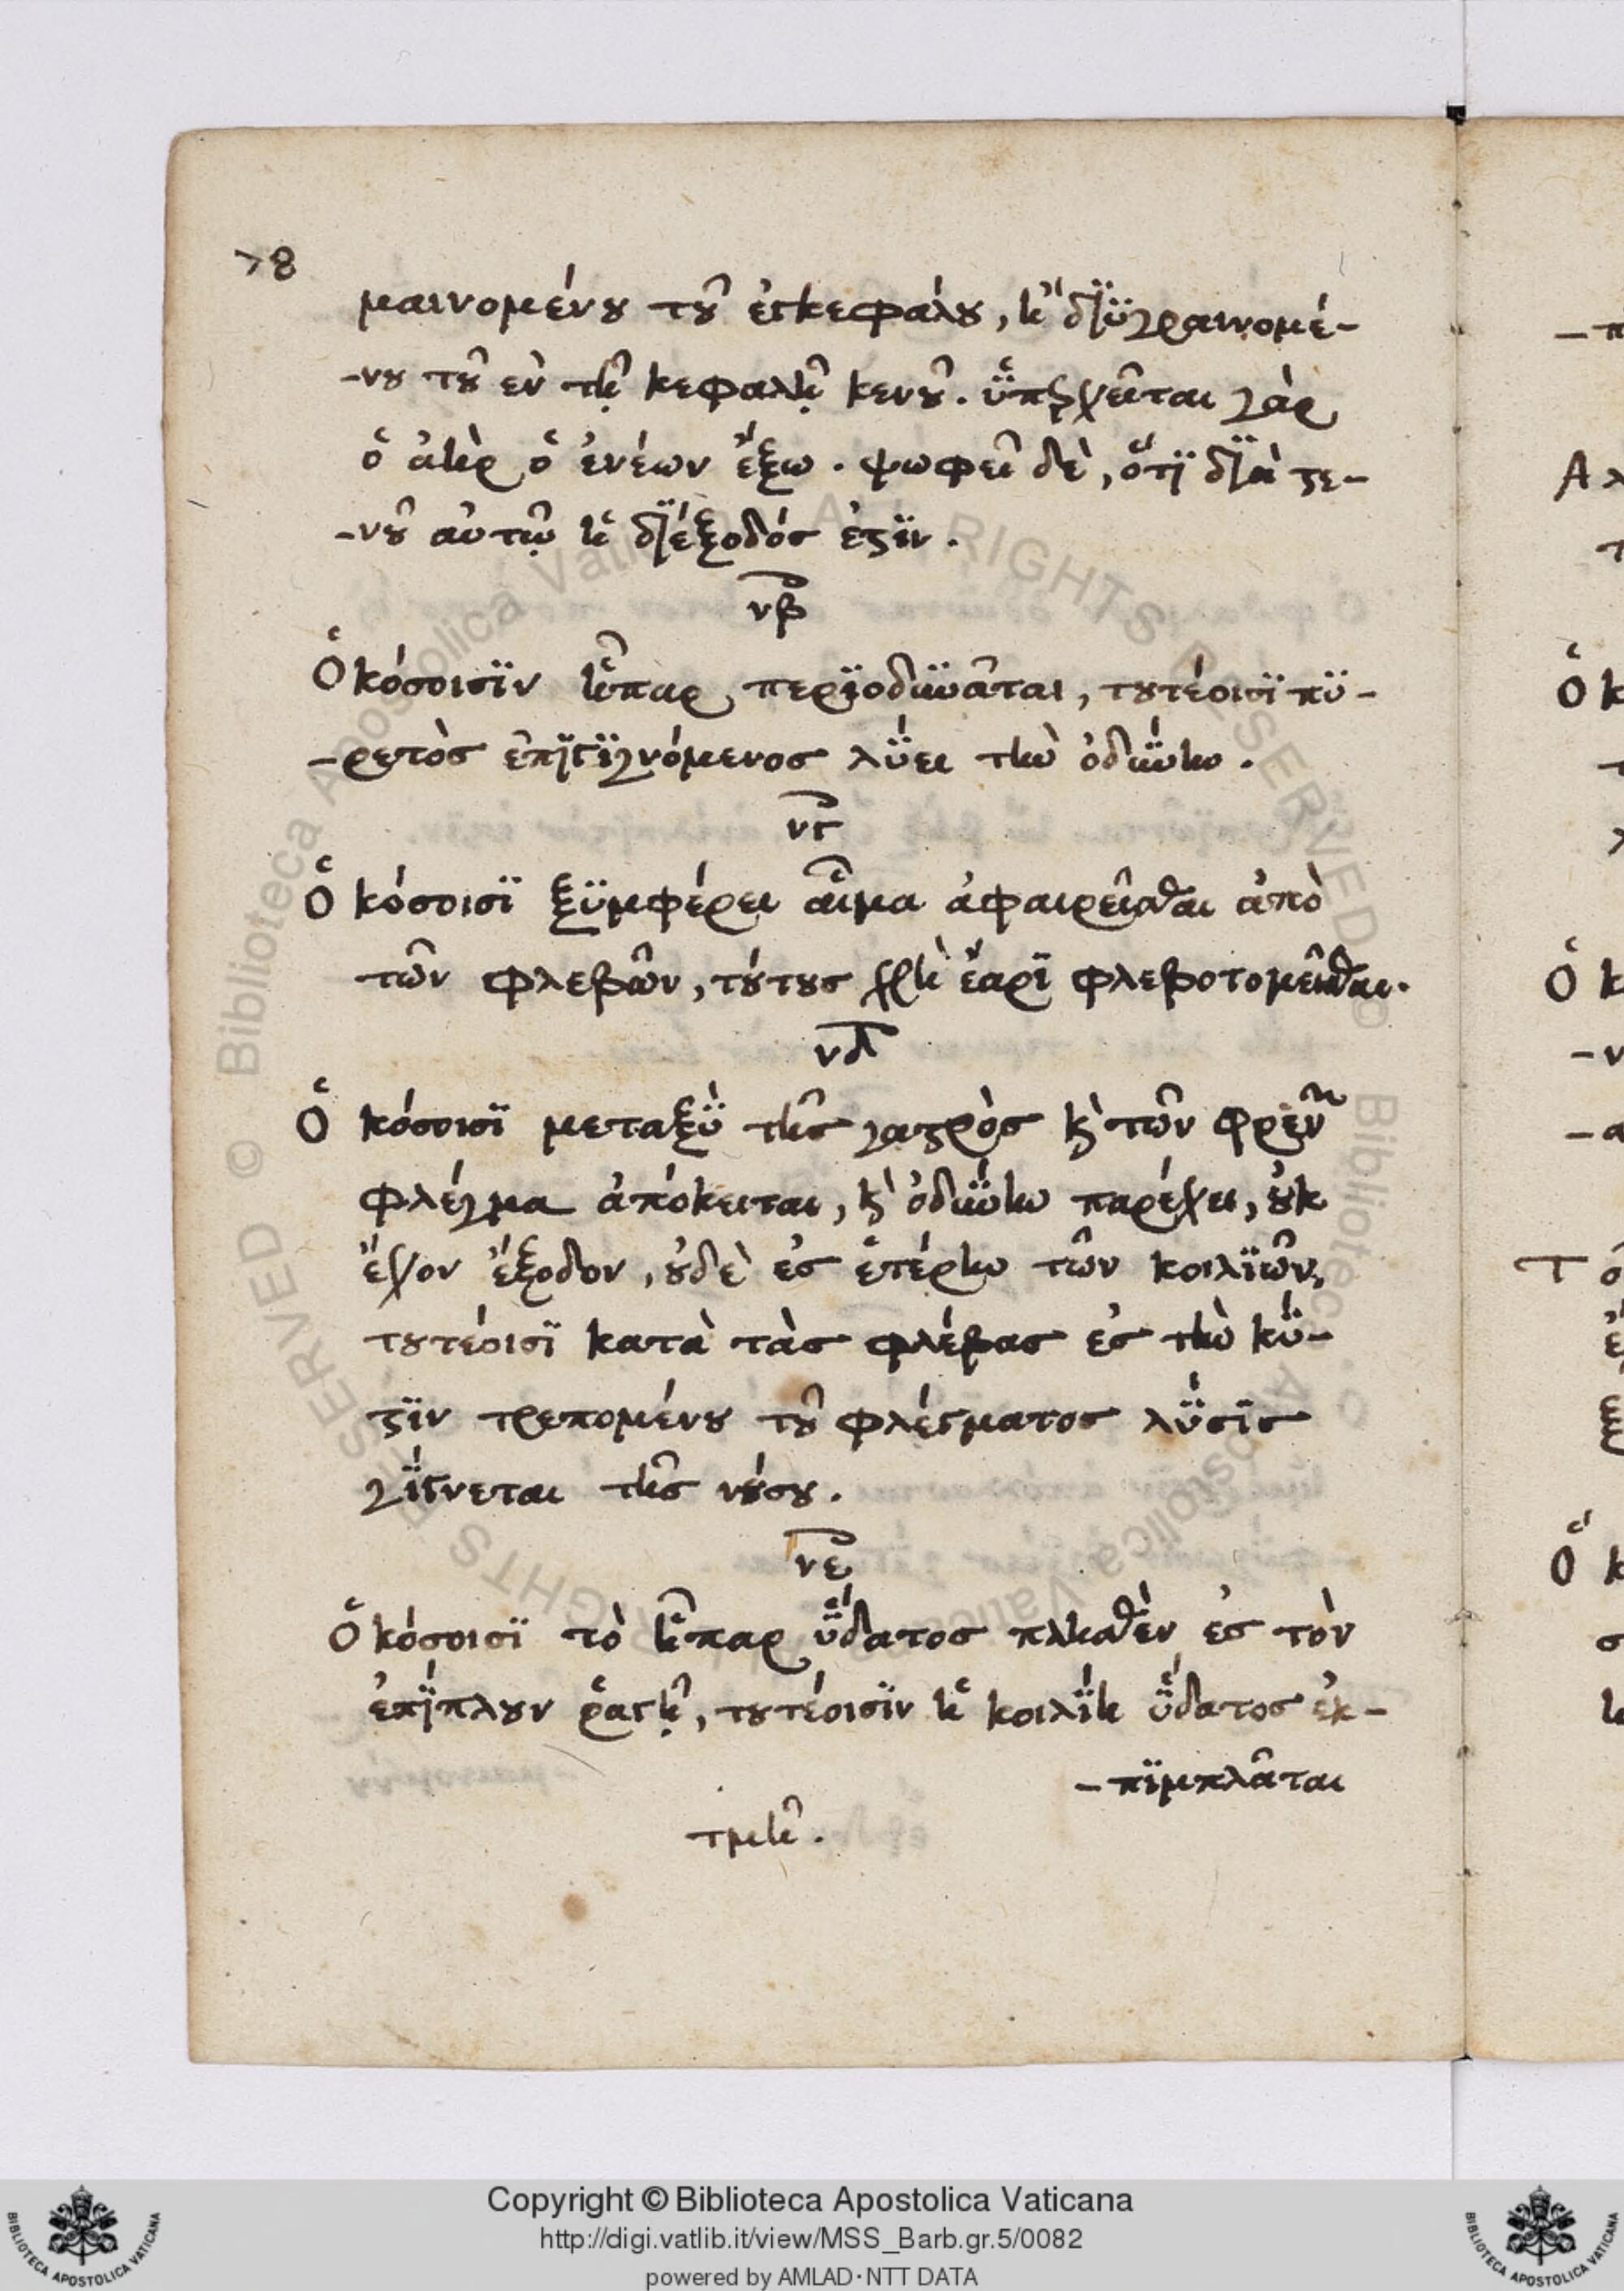 78
μαινομένου τοῦ ἐγκεφάλου, ἢ διϋγραινομέ-
-νου τοῦ ἐν τῇ κεφαλῇ κενοῦ. ὑπερχεῖται γὰρ
ὁ ἀὴρ ὁ ἐνέων ἔξω. ψωφεῖ δὲ, ὅτϊ διὰ στε-
-νοῦ αὐτῷ ἡ διέξοδός ἐστϊν.
νβ
Ὁκόσοισϊν ἧπαρ περϊοδυνᾶται, τουτέοισϊ πϋ-
-ρετὸς ἐπϊγϊγνόμενος λύει τὴν ὀδύνην.
νγ
Ὁκόσοισϊ ξϋμφέρει αἷμα ἀφαιρεῖσθαι ἀπὸ
τῶν φλεβῶν, τούτους χρὴ ἔαρϊ φλεβοτομεῖσθαι.
νδ
Ὁκόσοισϊ μεταξὺ τῆς γαστρὸς καὶ τῶν φρενῶν
φλέγμα ἀπόκειται, καὶ ὀδύνην παρέχει, οὐκ
ἔχον ἔξοδον, οὐδὲ ἐς ἑτέρην τῶν κοιλϊῶν,
τουτέοισϊ κατὰ τὰς φλέβας ἐς τὴν κύ-
στϊν τρεπομένου τοῦ φλέγματος λύσϊς
γίγνεται τῆς νούσου.
νε
Ὁκόσοισϊ τὸ ἧπαρ ὕδατος πλησθὲν ἐς τὸν
ἐπίπλουν ῥαγῇ, τουτέοισϊν ἡ κοιλίη ὕδατος ἐκ-
-πϊμπλᾶται
τμῆ.
Copyright © Biblioteca Apostolica Vaticana
http://digi.vatlib.it/view/MSS_Barb.gr.5/0082
powered by AMLAD·NTT DATA